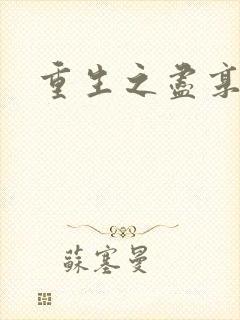 重生之盡棄
蘇塞曼